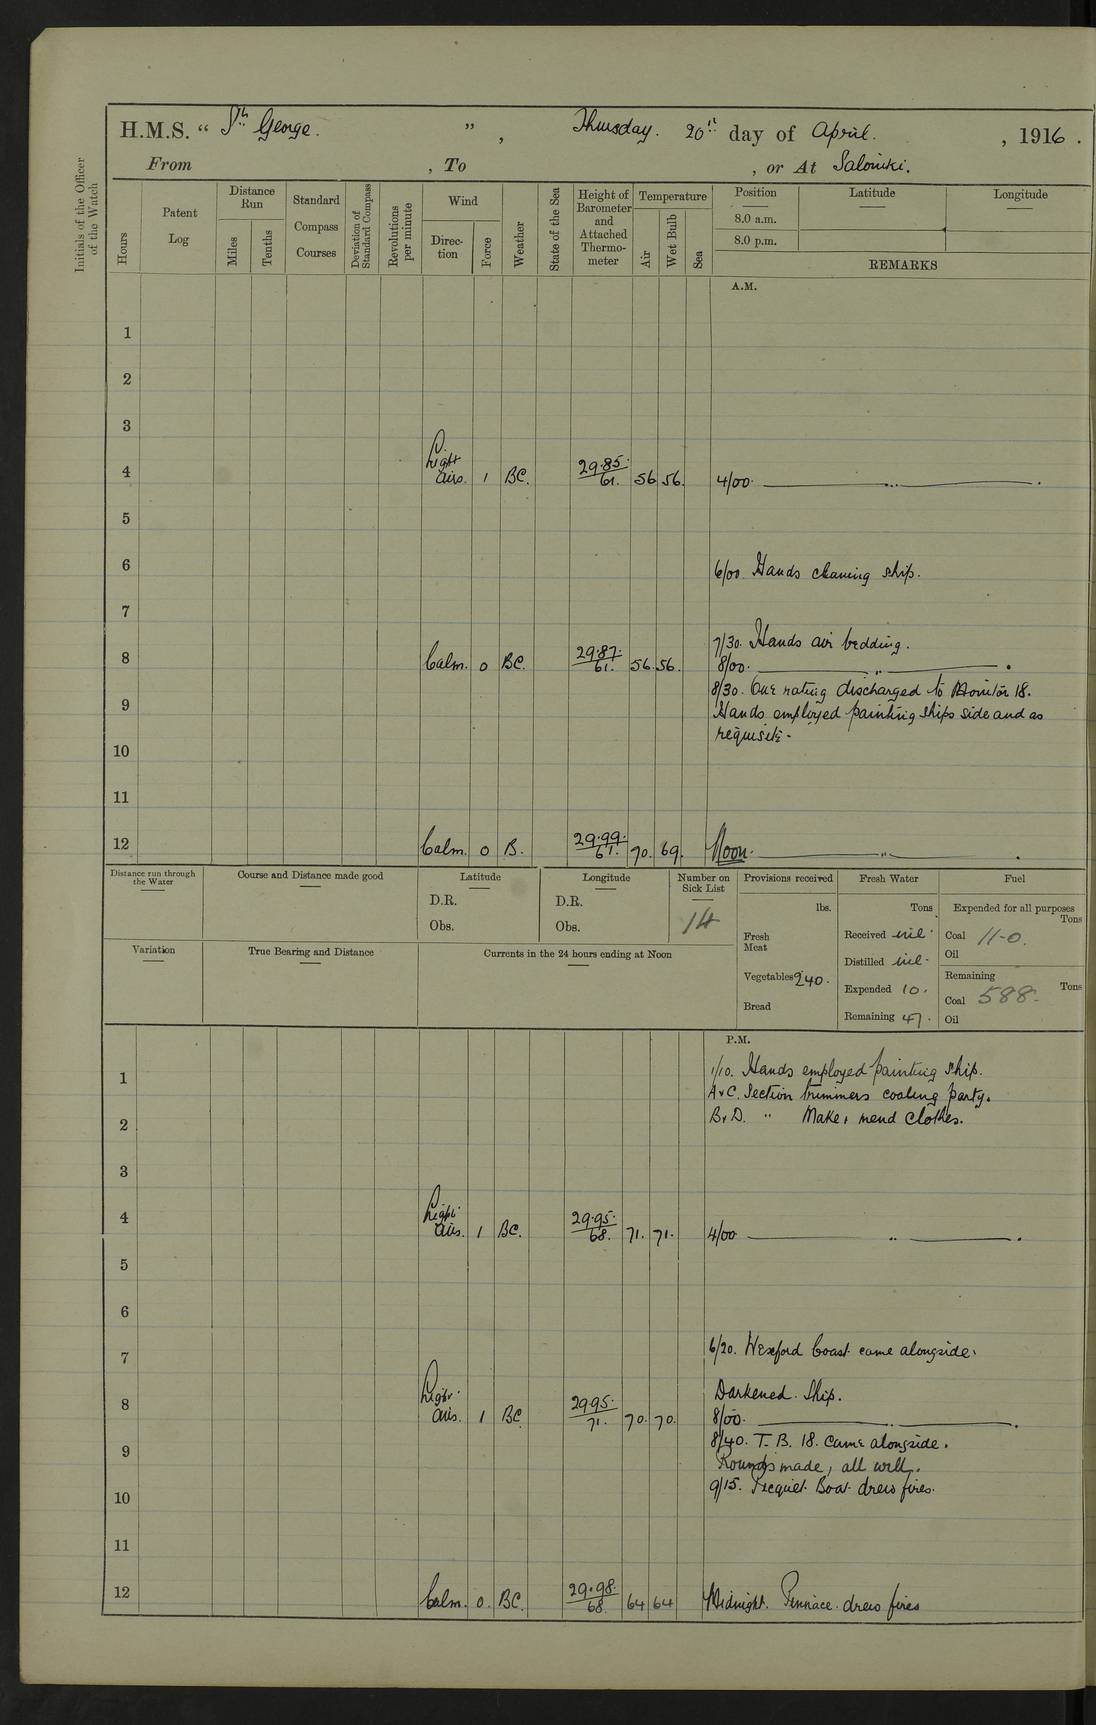 H.M.S. “ St. George. ” , Thursday. 20th day of April. , 1916 .
From , To , or At Salonuki.
Initials of the Officer of the Watch
Hours
Patent Log
Distance Run
Miles
Tenths
Standard Compass Courses
Deviation of Standard Compass
Revolutions per minute
Wind
Direction
Force
Weather
State of the Sea
Height of Barometer and Attached Thermometer
Temperature
Air
Wet Bulb
Sea
Position Latitude Longitude
8.0 a.m.
8.0 p.m.
REMARKS
A.M.
1
2
3
4 Light airs. 1 BC. 29.85. 61. 56 56. 4/00. „ .
5
6 6/00 Hands cleaning ship.
7
7/30. Hands air bedding.
8 Calm. 0 BC. 29.87. 61. 56. 56. 8/00. „ .
8/30. One rating discharged to Monitor 18.
9 Hands employed painting ships side and as
requisite.
10
11
12 Calm. 0 B. 29.99. 61. 70. 69. Noon. „ .
Distance run through the Water
Course and Distance made good
Latitude
D.R.
Obs.
Longitude
D.R.
Obs.
Number on Sick List
14
Provisions received
lbs.
Fresh Meat
Vegetables 240.
Bread
Fresh Water
Tons
Received nil.
Distilled nil.
Expended 10.
Remaining 47.
Fuel
Expended for all purposes
Tons
Coal 11-0.
Oil
Remaining
Tons
Coal 588.
Oil
Variation
True Bearing and Distance
Currents in the 24 hours ending at Noon
P.M.
1/10. Hands employed painting ship.
1
A & C. Section trimmers coaling party.
B & D. " Make & mend clothes.
2
3
4 Light airs. 1 BC. 29.95. 68. 71. 71. 4/00 „ .
5
6
6/20. Wexford Coast came alongside.
7
Darkened Ship.
8 Light airs. 1 BC 29.95. 71. 70. 70. 8/00. „ .
8/40. T.B. 18. came alongside.
9 Rounds made, all well.
9/15. Picquet Boat drew fires.
10
11
12 Calm. 0. BC. 29.98. 68. 64 64 Midnight. Pinnace drew fires